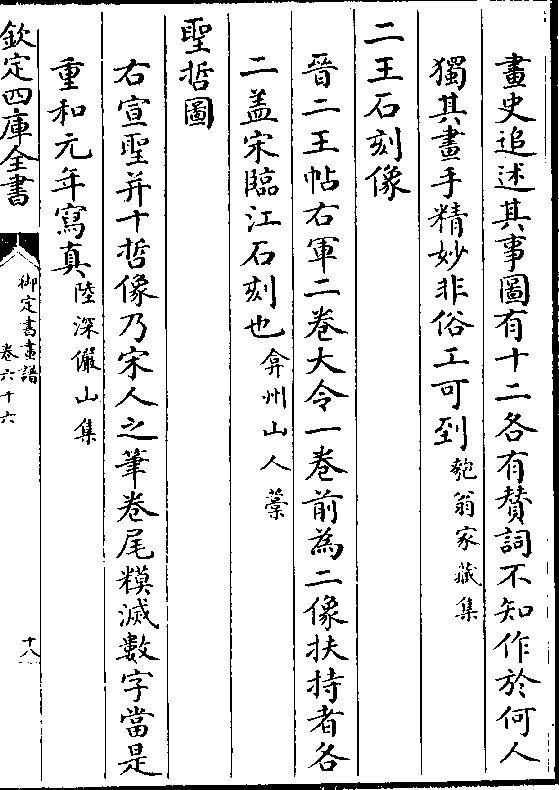 畫史追述其事圖有十二各有賛詞不知作於何人
獨其畫手精妙非俗工可到匏翁家藏集
二王石刻像
晉二王帖右軍二卷大令一卷前為二像扶持者各
二盖宋臨江石刻也弇州山人藁
聖哲圖
右宣聖并十哲像乃宋人之筆卷尾糢滅數字當是
重和元年寫真陸深儼山集
欽定四庫全書
御定書畫譜
卷六十六
十八